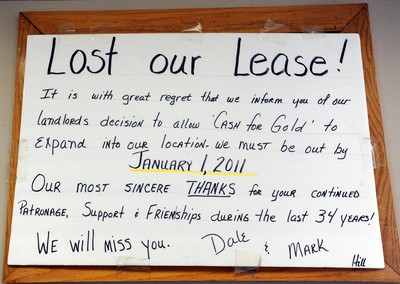 Lost our Lease!
It is with great regret that we inform you of our
landlords decision to allow 'Cash for Gold' to
expand into our location. We must be out by
January 1, 2011
Our most sincere THANKS for your continued
Patronage, Support & Friendships during the last 34 years!
We will miss you. Dale & Mark
Hill